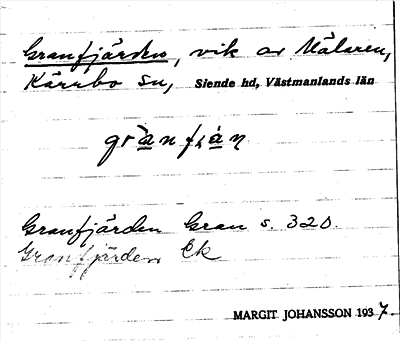 Granfjärden, vik av Mälaren,
Kärrbo sn, Siende hd, Västmanlands län
gràn fjàn
Granfjärden Gran s. 320.
Granfjärden Ek
MARGIT JOHANSSON 1937.